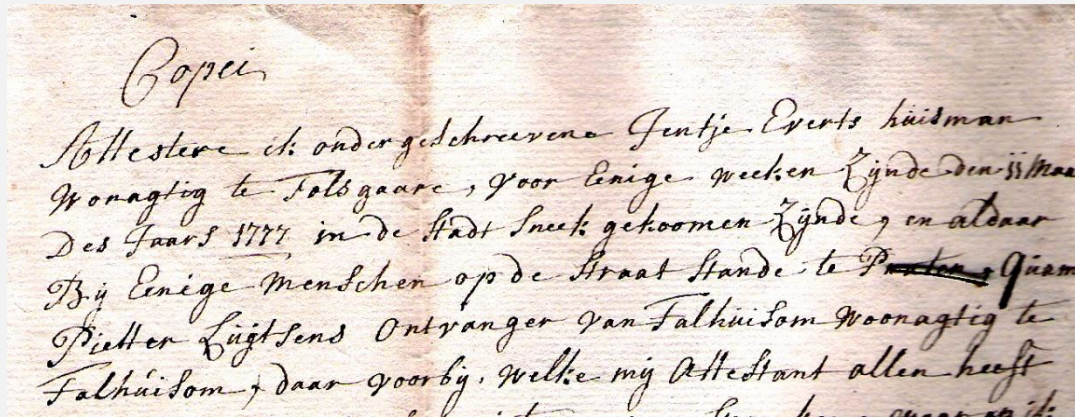 Copei
Attestere ik ondergeschreevene Jentje Everts huisman
Wonagtig te Folsgaare, voor Einige weeken Zijnde den 11 Maa
Des Jaars 1777 in de Stadt Sneek gekoomen Zijnde, en aldaar
Bij Einige Menschen op de Straat Stande te Praten, Quam
Pietter Luijtsens Ontvanger van Falhuisom Woonagtig te
Falhuisom, daar voorbij, welke mij Attestant allen heeft